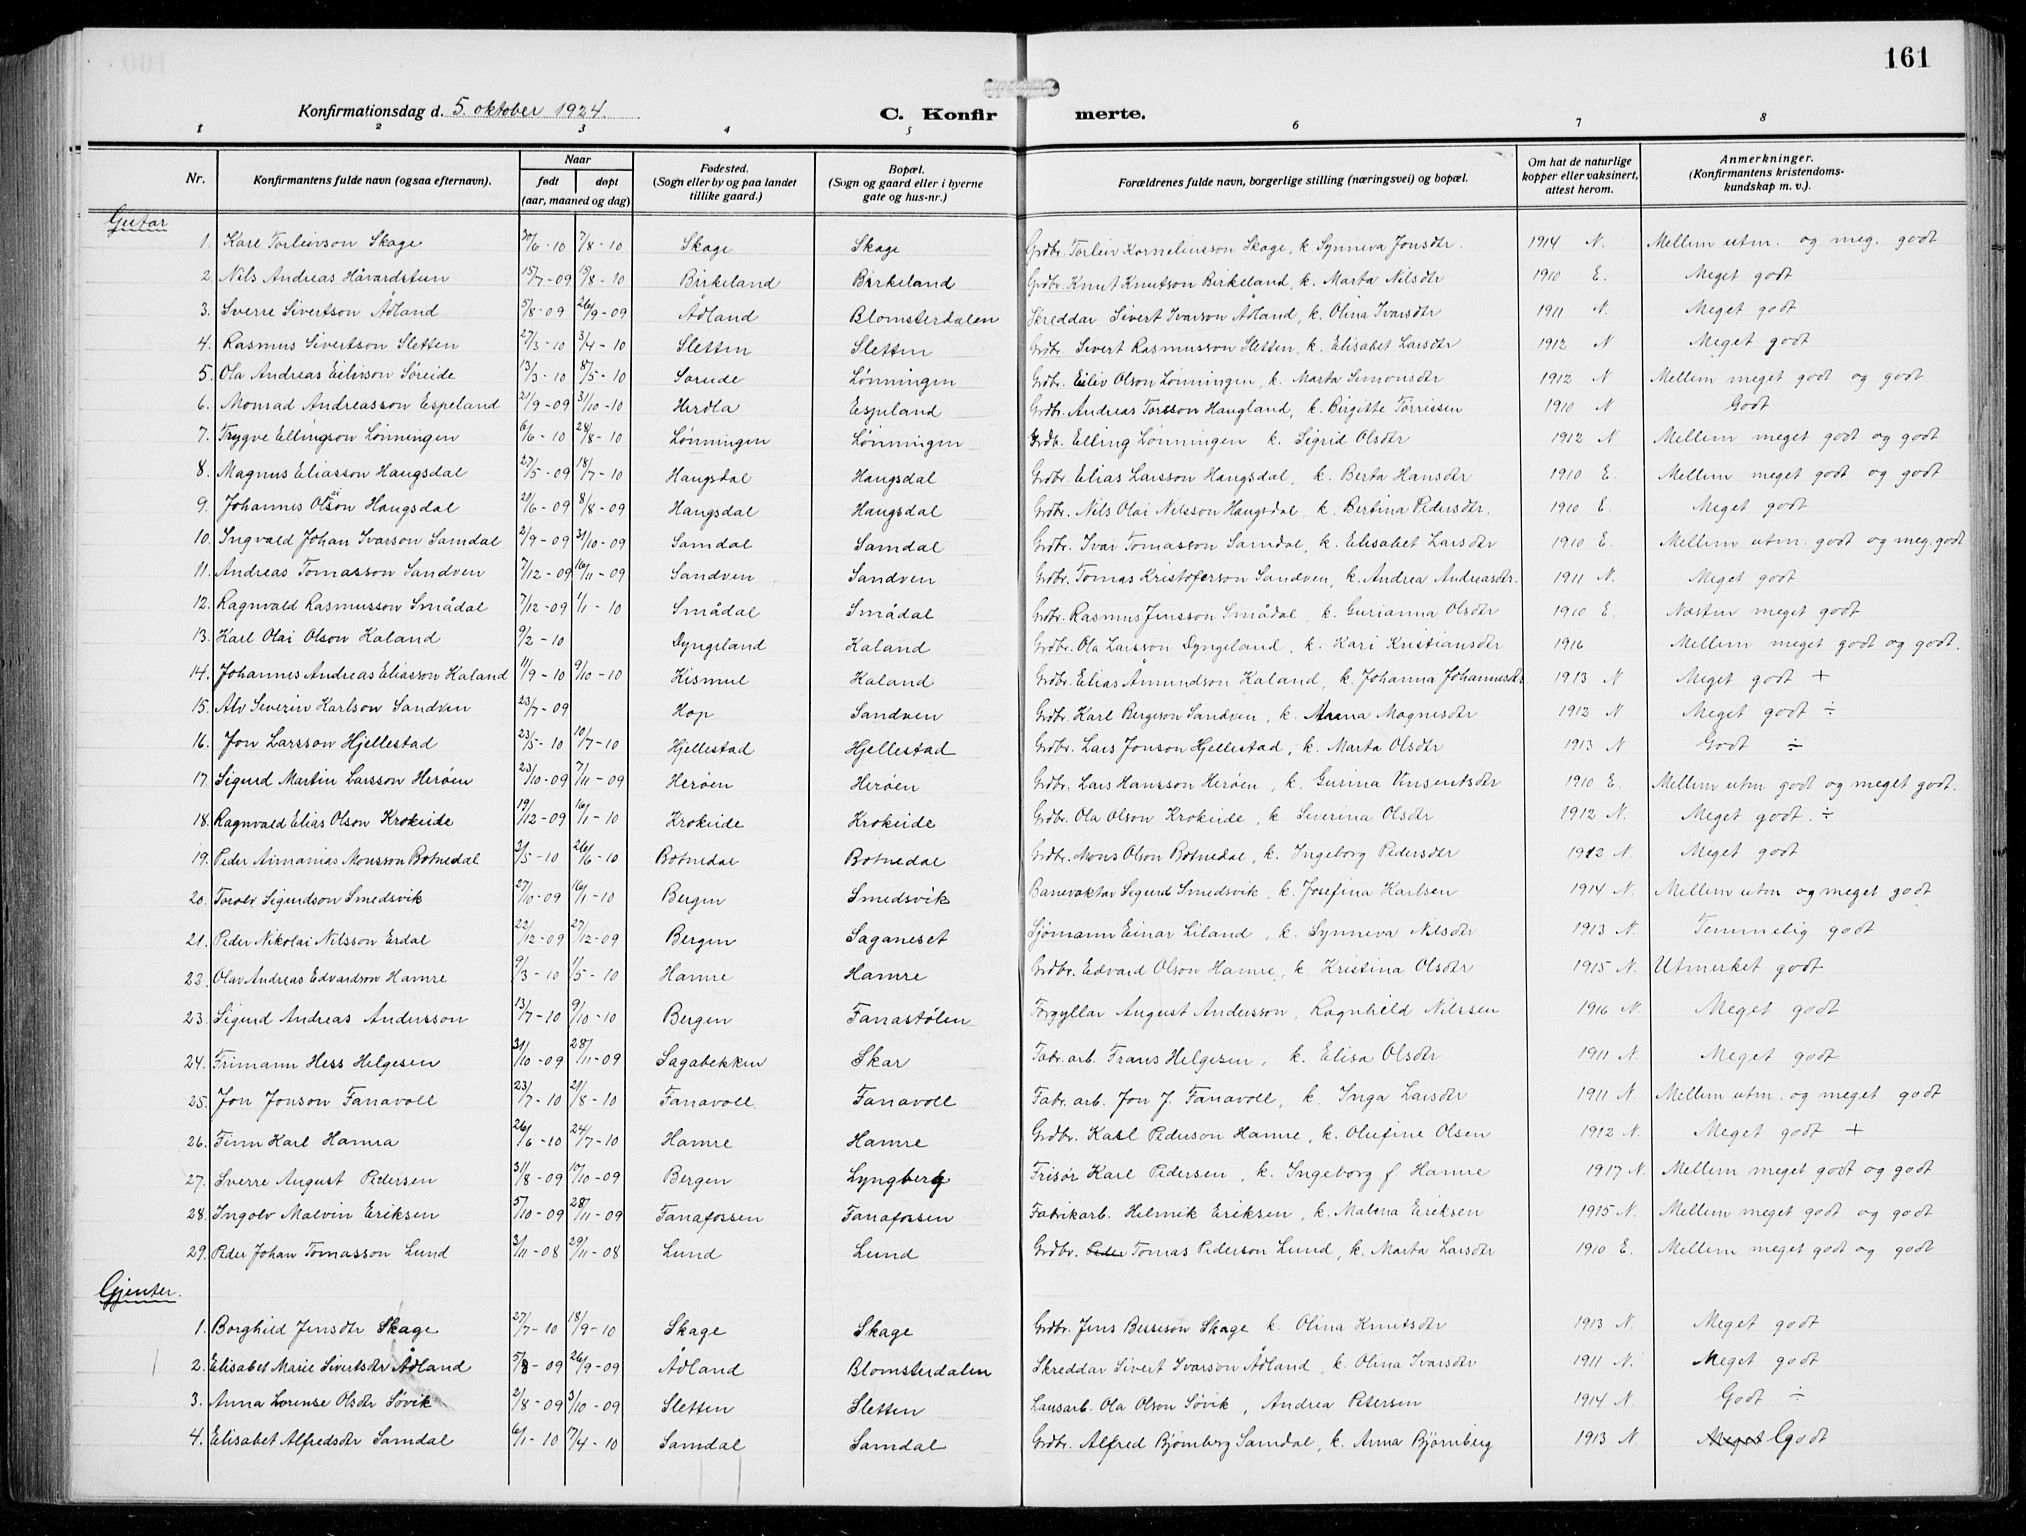 161
Konfirmationsdag d. 5. oktober 1924.
C. Konfirmerte.
1 2 3 4 5 6 7 8
Nr.
Konfirmantens fulde navn (ogsaa efternavn).
Naar
født
døpt
(aar, maaned og dag)
Fødested.
(Sogn eller by og paa landet
tillike gaard.)
Bopæl.
(Sogn og gaard eller i byerne
gate og hus-nr.)
Forældrenes fulde navn, borgerlige stilling (næringsvei) og bopæl.
Om hat de naturlige
kopper eller vaksinert,
attest herom.
Anmerkninger.
(Konfirmantens kristendoms-
kundskap m. v.)
Gutar
1. Karl Torleivson Skage 30/6-10 7/8-10 Skage Skage Grdbr. Torleiv Korneliusson Skage, k. Synneva Jonsdtr. 1914 N. Mellem utm. og meg. godt
2. Nils Andreas Håvardstun 15/7-09 15/8-10 Birkeland Birkeland Grdbr. Knut Knutson Birkeland, k. Marta Nilsdtr 1910 E. Meget godt
3. Sverre Sivertson Ådland 5/8-09 26/9-09 Ådland Blomsterdalen Skreddar Sivert Ivarson Ådland, k. Olina Ivarsdtr 1911 N. Meget godt
4. Rasmus Sivertson Sletten 27/3-10 3/4-10 Sletten Sletten Grdbr. Sivert Rasmusson Sletten, k. Elisabet Larsdtr 1912 N Meget godt
5. Ola Andreas Eilivson Søreide 13/3-10 8/5-10 Søreide Lønningen Grdbr. Eiliv Olson Lønningen, k. Marta Simonsdtr 1912 N Mellem meget godt og godt
6. Monrad Andreasson Espeland 21/9-09 31/10-10 Herdla Espeland Grdbr. Andreas Torsson Haugland, k. Birgitte Tørrissen 1910 N Godt
7. Trygve Ellingson Lønningen 6/6-10 28/8-10 Lønningen Lønningen Grdb. Elling Lønningen k. Sigrid Olsdtr 1912 N Mellem meget godt og godt
8. Magnus Eliasson Haugsdal 27/5-09 18/7-10 Haugsdal Haugsdal Grdbr. Elias Larsson Haugsdal, k. Berta Hansdtr 1910 E. Mellem meget godt og godt
9. Johannes Olson Haugsdal 20/6-09 8/8-09 Haugsdal Haugsdal Grdbr. Nils Olai Nilsson Haugsdal, k. Bertina Pedersdtr. 1910 E. Meget godt
10. Ingvald Johan Ivarson Samdal 2/9-09 31/10-09 Samdal Samdal Grdbr. Ivar Tomasson Samdal, k. Elisabet Larsdtr 1910 E. Mellem utm. godt og meg. godt
11. Andreas Tomasson Sandven 7/12-09 16/11-09 Sandven Sandven Grdbr. Tomas Kristoferson Sandven, k. Andrea Andreasdtr. 1911 N. Meget godt
12. Ragnvald Rasmusson Smådal 7/12-09 1/1-10 Smådal Smådal Grdbr. Rasmus Jensson Smådal, k. Gurianna Olsdtr 1910 E. Næsten meget godt
13. Karl Olai Olson Kaland 9/2-10 Dyngeland Kaland Grdbr. Ola Larsson Dyngeland, k. Kari Kristiansdtr 1916 Mellem meget godt og godt.
14. Johannes Andreas Eliasson Kaland 11/9-10 9/10-10 Kismul Kaland Grdbr. Elias Åmundson Kaland, k. Johanna Johannesdtr. 1913 N Meget godt +
15. Alv Severin Karlson Sandven 23/7-09 Hop Sandven Grdbr. Karl Bergeson Sandven, k. Anna Magnesdtr 1912 N Meget godt ÷
16. Jon Larsson Hjellestad 23/5-10 10/7-10 Hjellestad Hjellestad Grdbr. Lars Jonson Hjellestad, k. Marta Olsdtr 1913 N Godt ÷
17. Sigurd Martin Larsson Herøen 23/10-09 7/11-09 Herøen Herøen Grdbr. Lars Hansson Herøen, k. Gurina Vinsentsdtr 1910 E. Mellem utm godt og meget godt.
18. Ragnvald Elias Olson Krokeide 19/12-09 16/1-10 Krokeide Krokeide Grdbr. Ola Olson Krokeide, k Severina Olsdtr 1912 N. Meget godt. ÷
19. Peder Aimanias Monsson Botnedal 3/5-10 26/6-10 Botnedal Botnedal Grdbr. Mons Olson Botnedal, k. Ingeborg Pedersdtr 1912 N. Meget godt
20. Torolv Sigurdson Smedsvik 27/10-09 16/1-10 Bergen Smedsvik Banevaktar Sigurd Smedsvik, k. Josefina Karlsen 1914 N. Mellem utm og meget godt
21. Peder Nikolai Nilsson Erdal 22/12-09 27/12-09 Bergen Saganeset Sjømann Einar Liland, k. Synneva Nilsdtr 1913 N. Temmelig godt
22. Olav Andreas Edvardson Hamre 9/3-10 1/5-10 Hamre Hamre Grdbr. Edvard Olson Hamre, k. Kristina Olsdtr 1915 N. Utmerket godt
23. Sigurd Andreas Andersson 13/7-10 9/10-10 Bergen Fanastølen Forgyllar August Andersson, Ragnhild Nilssen 1916 N. Meget godt
24. Frimann Hess Helgesen 31/10-09 28/11-09 Sagabekken Skar Fabr. arb. Frans Helgesen, k. Elisa Olsdtr 1911 N. Meget godt
25. Jon Jonson Fanavoll 23/7-10 21/8-10 Fanavoll Fanavoll Fabr. arb. Jon J. Fanavoll, k. Inga Larsdtr 1911 N. Mellem utm. og meget godt
26. Finn Karl Hamra 26/6-10 24/7-10 Hamre Hamre Grdbr. Karl Pederson Hamre, k. Olufine Olsen 1912 N. Meget godt +
27. Sverre August Pedersen 31/8-09 10/10-09 Bergen Lyngberg Frisør Karl Pedersen, k. Ingeborg f. Hamre 1917 N. Mellem meget godt og godt
28. Ingolv Malvin Eriksen 5/10-09 28/11-09 Fanafossen Fanafossen Fabrikarb. Helmik Eriksen, k. Malena Eriksen 1915 N. Mellem meget godt og godt
29. Peder Johan Tomasson Lund 3/11-08 29/11-08 Lund Lund Grdbr. Peder Tomas Pederson Lund, k. Marta Larsdtr 1910 E. Mellem meget godt og godt
Gjenter.
1. Borghild Jensdtr Skage 27/7-10 18/9-10 Skage Skage Grdbr. Jens Besseson Skage k. Olina Knutsdtr 1913 N. Meget godt
2. Elisabet Marie Sivertsdtr Ådland 5/8-09 26/9-09 Ådland Blomsterdalen Skreddar Sivert Ivarson Ådland, k. Olina Ivarsdtr 1911 N. Meget godt
3. Anna Lorense Olsdtr Søvik 2/8-09 3/10-09 Sletten Sletten Lausarb. Ola Olson Søvik, Andrea Petersen 1914 N. Godt ÷
4. Elisabet Alfredsdtr Samdal 6/1-10 17/4-10 Samdal Samdal Grdbr. Alfred Bjørnberg Samdal, k. Anna Bjørnberg 1913 N. Meget Godt